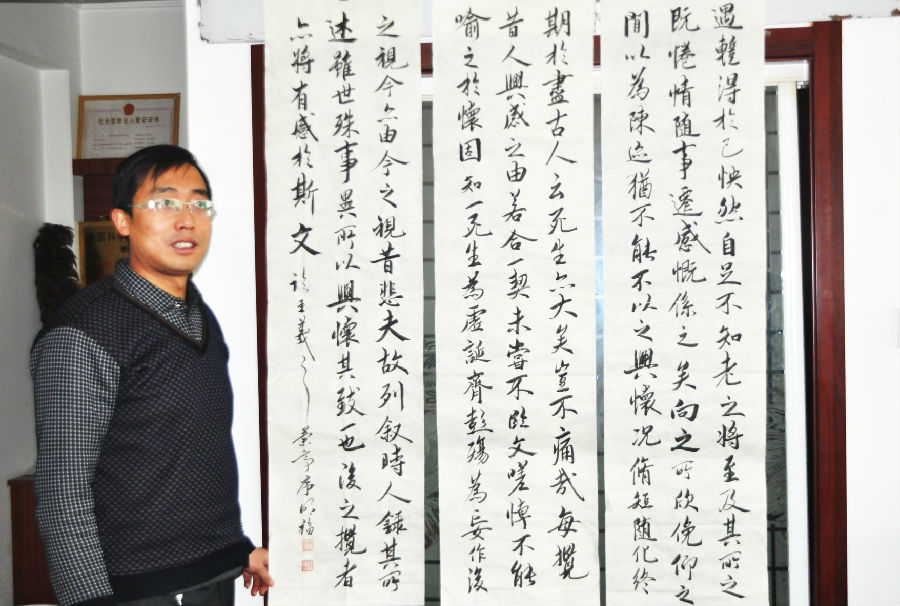 社会团体法人登记证书
遇輙得於己怏然自足不知老之將至及其所之
既惓情随事遷感慨係之矣向之所欣俛仰之
間以為陳迹猶不能不以之興懷况脩短随化終
期於盡古人云死生亦大矣豈不痛哉每攬
昔人興感之由若合一契未嘗不臨文嗟悼不能
喻之於懷固知一死生為虛誕齊彭殤為妄作後
之視今亦由今之視昔悲夫故列叙時人錄其所
述雖世殊事異所以興懷其致一也後之攬者
亦將有感於斯文 臨王羲之